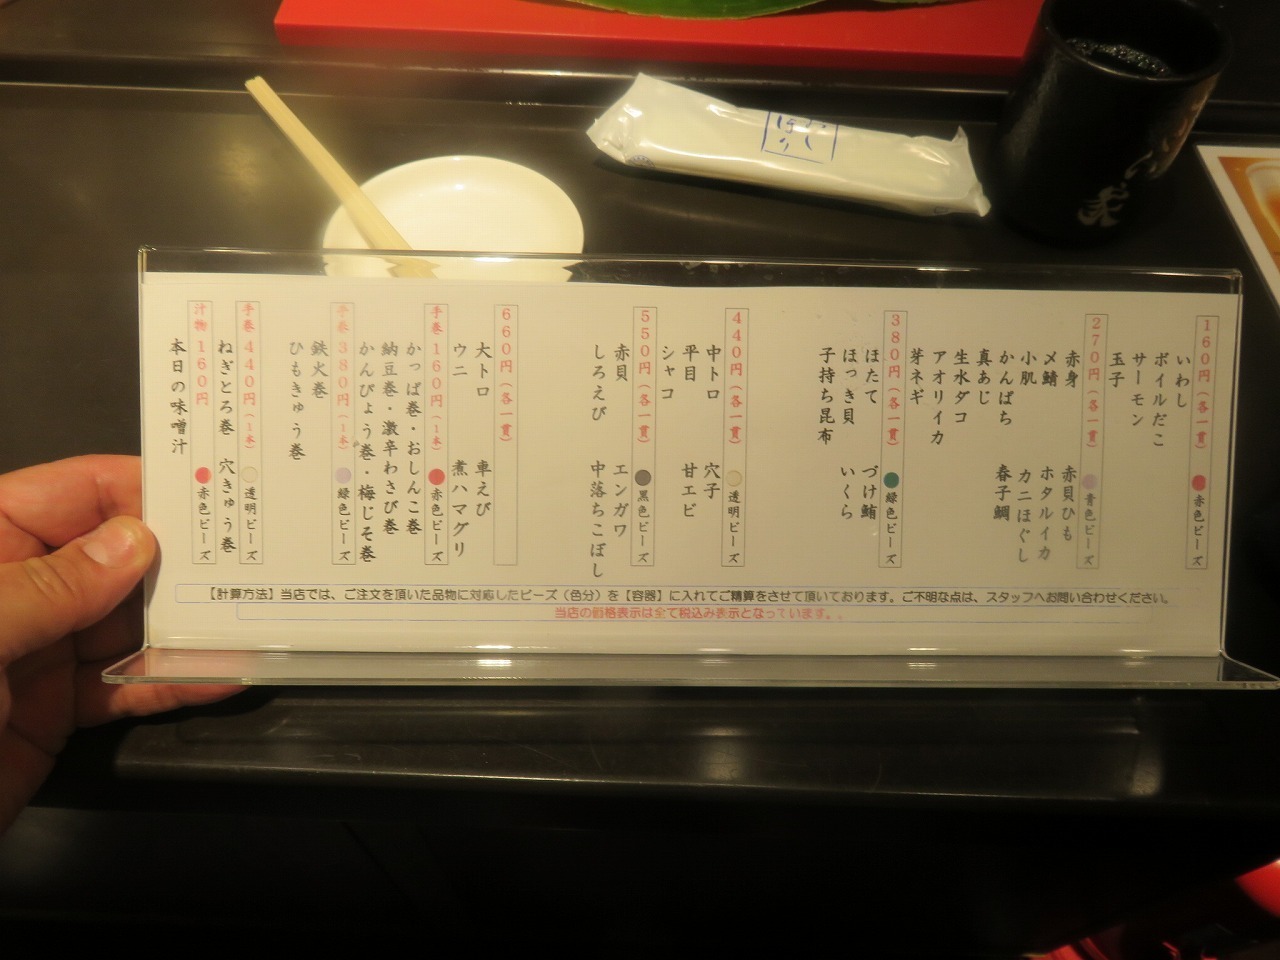 おしぼり
160円(各一貫) 赤色ビーズ
いわし
ボイルだこ
サーモン
玉子
270円(各一貫) 青色ビーズ
赤身 赤貝ひも
〆鯖 ホタルイカ
小肌 カニほぐし
かんぱち 春子鯛
真あじ
生水ダコ
アオリイカ
芽ネギ
380円(各一貫) 緑色ビーズ
ほたて づけ鮪
ほっき貝 いくら
子持ち昆布
440円(各一貫) 透明ビーズ
中トロ 穴子
平目 甘エビ
シャコ
550円(各一貫) 黒色ビーズ
赤貝 エンガワ
しろえび 中落ちこぼし
660円(各一貫)
大トロ 車えび
ウニ 煮ハマグリ
手巻160円(1本) 赤色ビーズ
かっぱ巻・おしんこ巻
納豆巻・激辛わさび巻
かんぴょう巻・梅じそ巻
手巻380円(1本) 緑色ビーズ
鉄火巻
ひもきゅう巻
手巻440円(1本) 透明ビーズ
ねぎとろ巻 穴きゅう巻
汁物160円 赤色ビーズ
本日の味噌汁
【計算方法】当店では、ご注文を頂いた品物に対応したビーズ(色分)を【容器】に入れてご精算をさせて頂いております。ご不明な点は、スタッフへお問い合わせください。
当店の価格表示は全て税込み表示となっています。